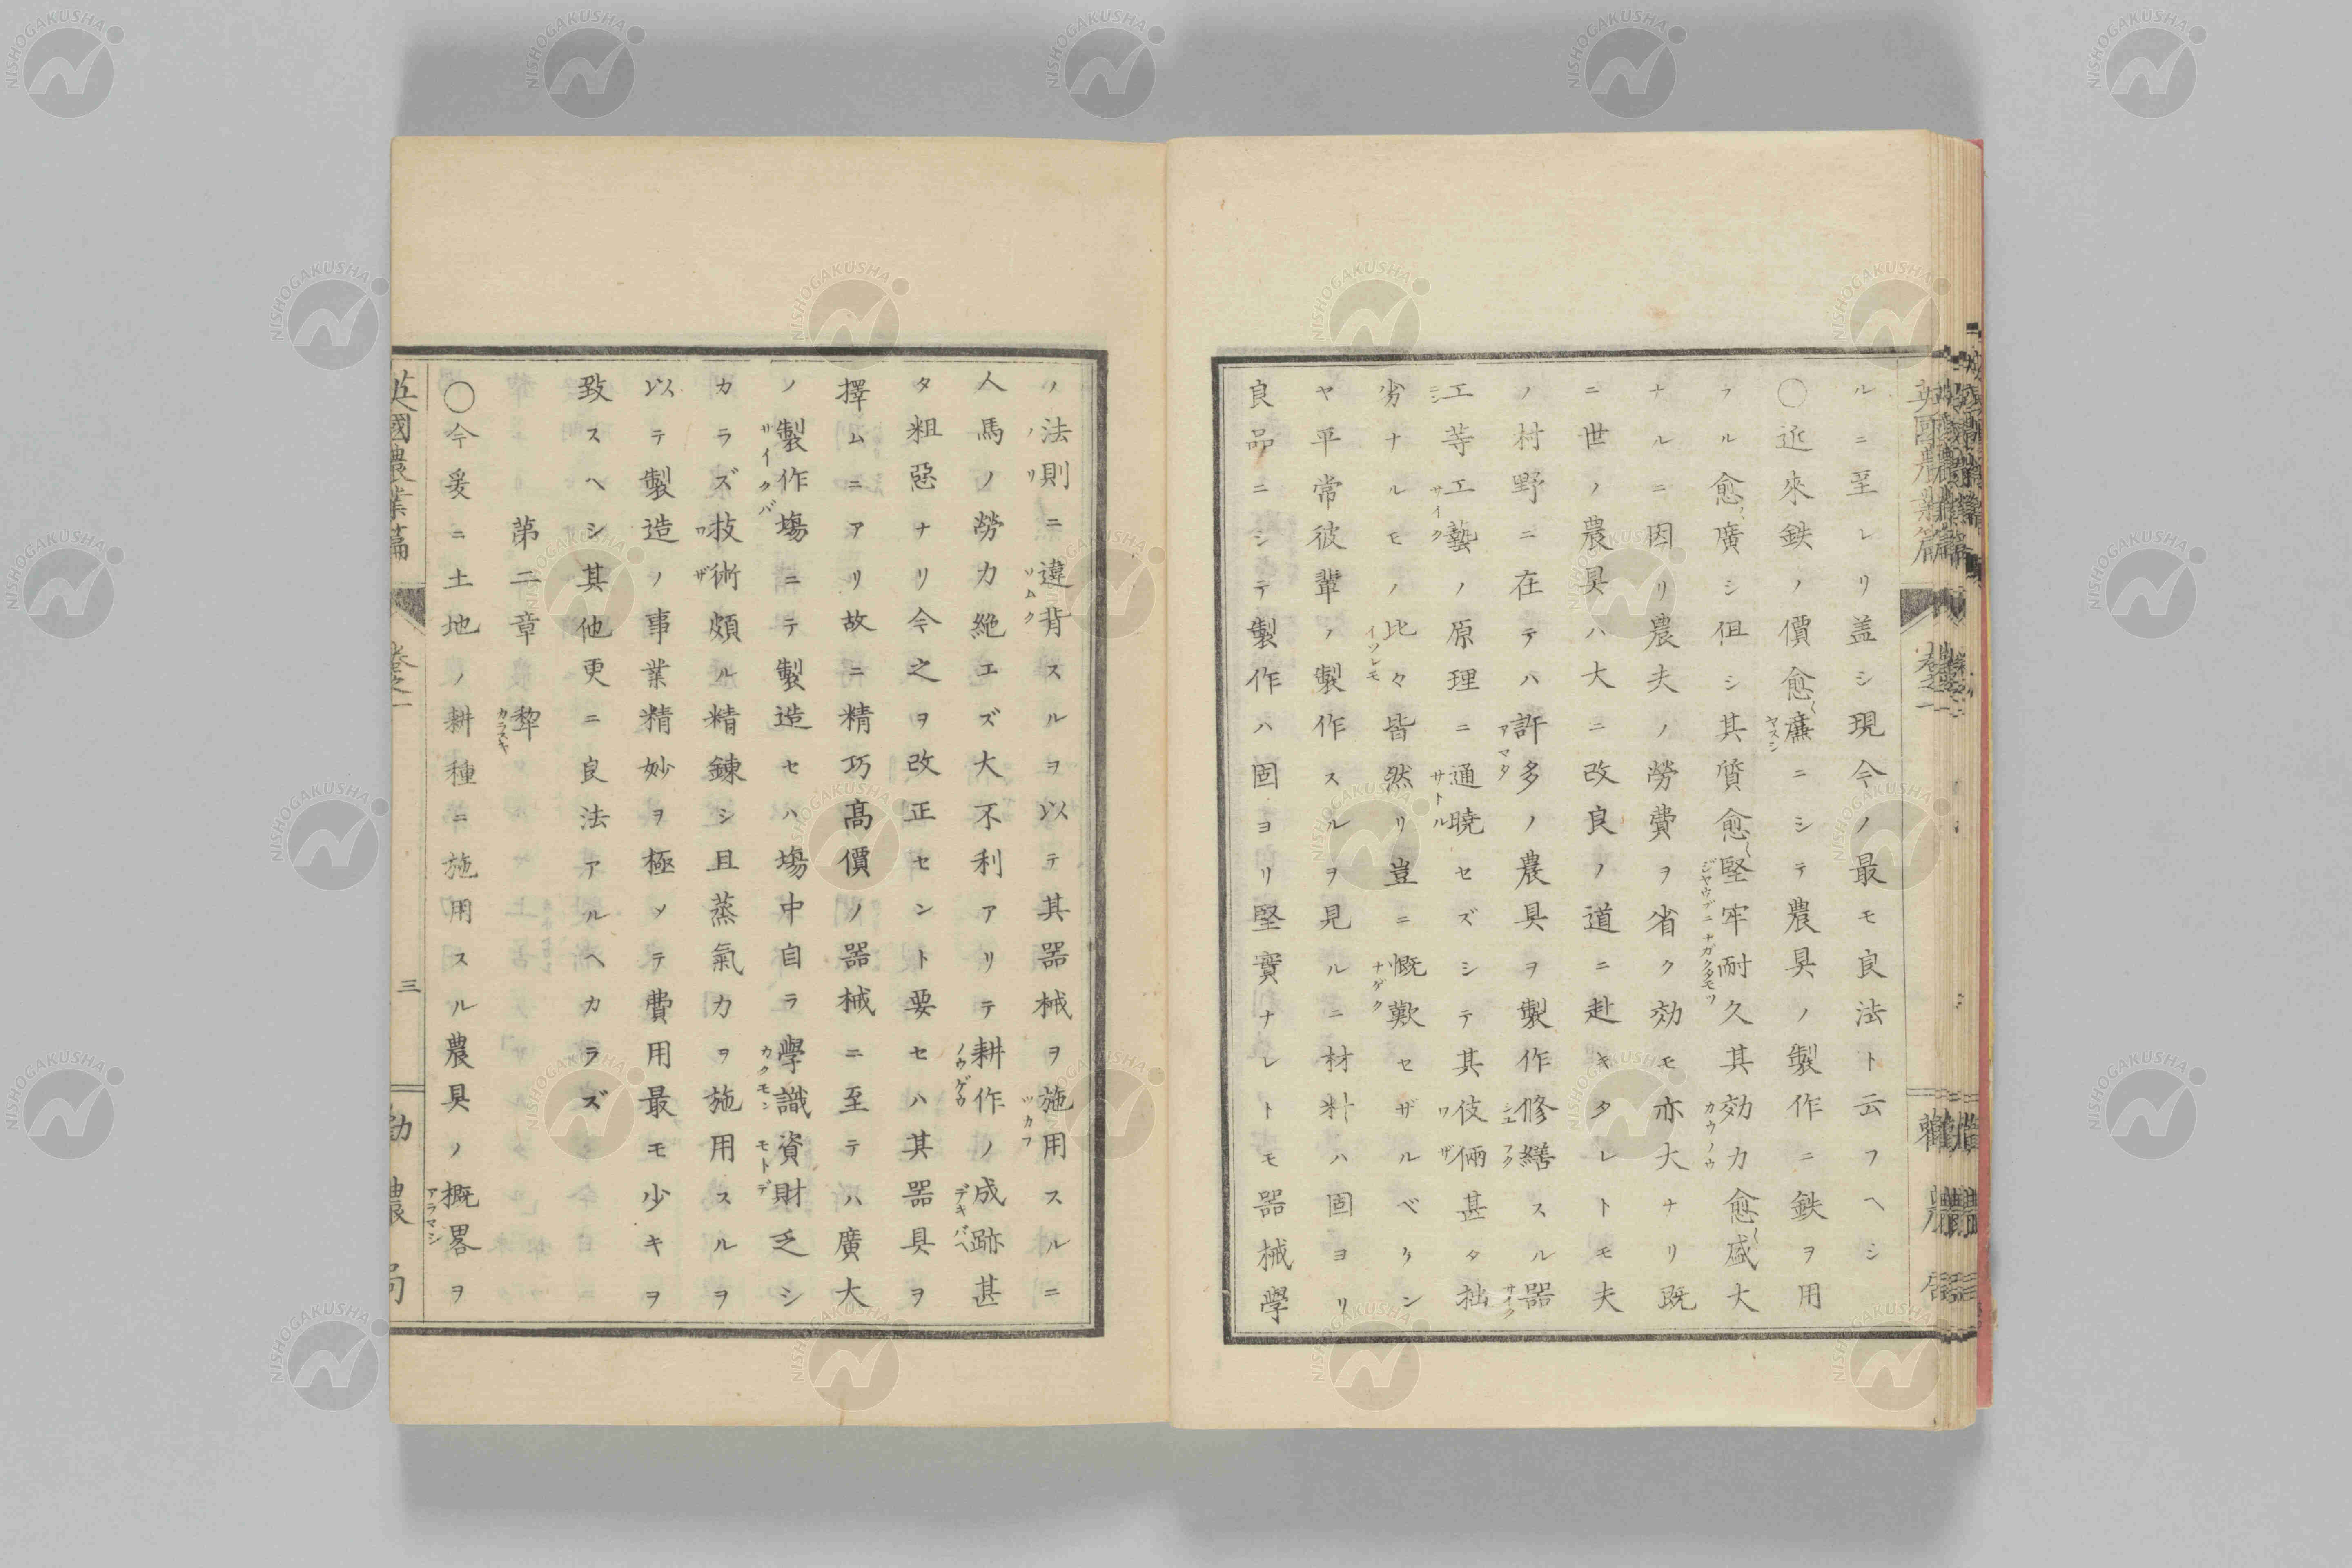 ルニ至レリ盖シ現今ノ最モ良法ト云フヘシ
〇近來鉄ノ價愈〱廉ニシテ農具ノ製作ニ鉄ヲ用
フル愈〱廣シ伹シ其質愈〱堅牢耐久其効力愈〱盛大
ナルニ因リ農夫ノ勞費ヲ省ク効モ亦大ナリ既
ニ世ノ農具ハ大ニ改良ノ道ニ赴キタレトモ夫
ノ村野ニ在テハ許多ノ農具ヲ製作修繕スル器
工等工藝ノ原理ニ通曉セズシテ其伎倆甚タ拙
劣ナルモノ比々皆然リ豈ニ慨歎セザルベケン
ヤ平常彼輩ノ製作スルヲ見ルニ材料ハ固ヨリ
良品ニシテ製作ハ固ヨリ堅實ナレトモ器械學
ノ法則ニ違背スルヲ以テ其器械ヲ施用スルニ
人馬ノ勞力絶エズ大不利アリテ耕作ノ成跡甚
タ粗惡ナリ今之ヲ改正セント要セハ其器具ヲ
擇ムニアリ故ニ精巧高價ノ器械ニ至テハ廣大
ノ製作塲ニテ製造セハ塲中自ラ學識資財乏シ
カラズ技術頗ル精錬シ且蒸氣力ヲ施用スルヲ
以テ製造ノ事業精妙ヲ極メテ費用最モ少キヲ
致スヘシ其他更ニ良法アルヘカラズ
第二章 犂
〇今爰ニ土地ノ耕種ニ施用スル農具ノ概畧ヲ
英國農業篇 卷之一 三 勸農局